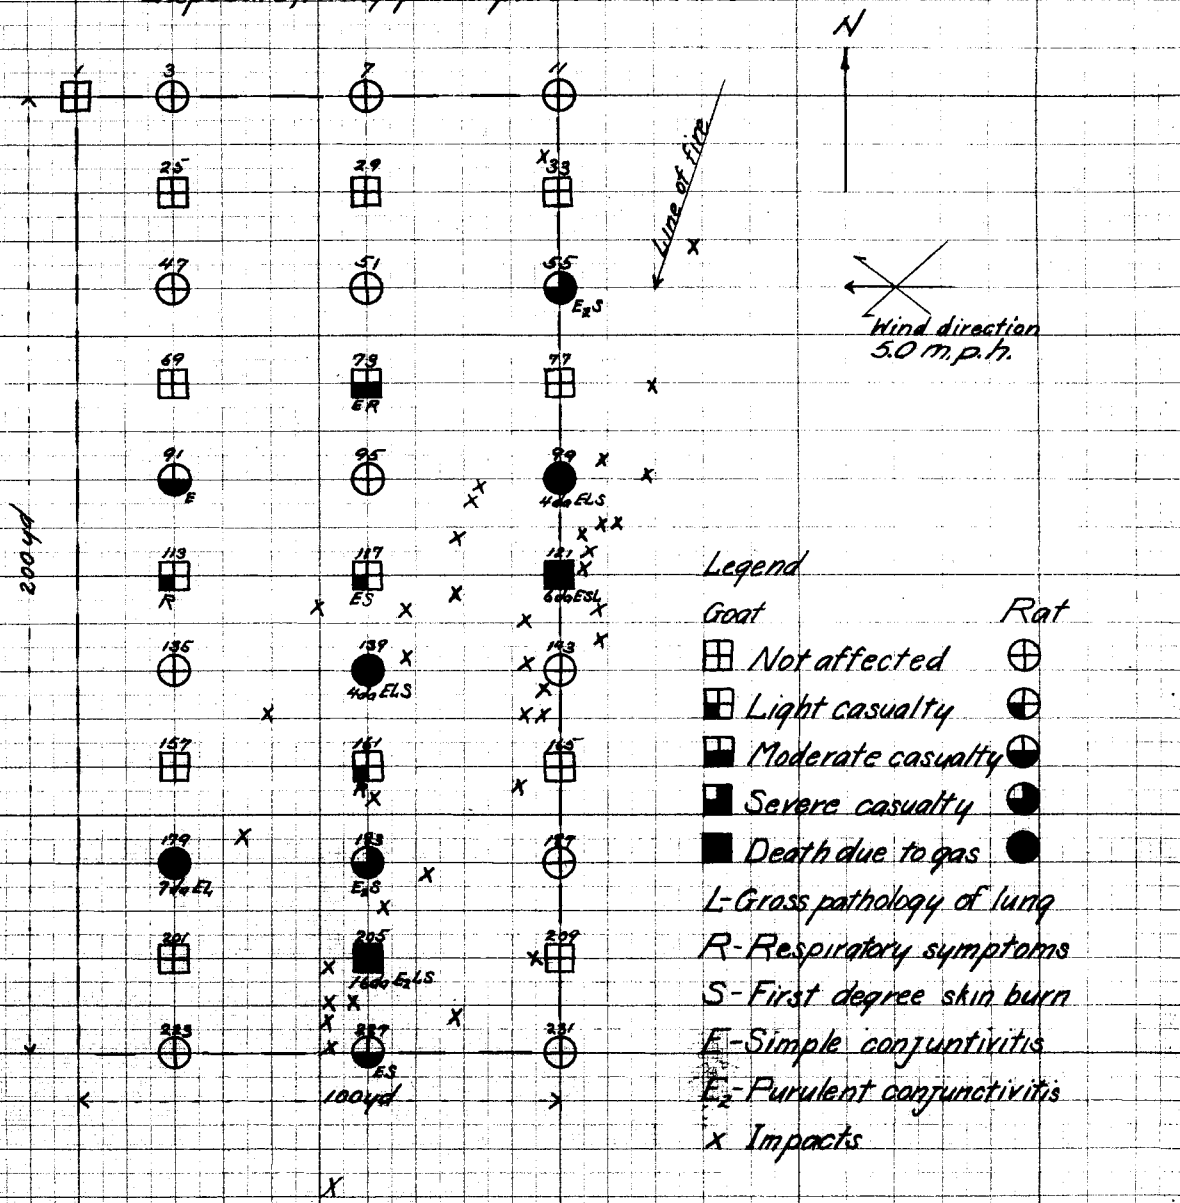 N
1 3 7 11
Line of fire
25 29 33
47 51 55
E₂S
Wind direction
5.0 m.p.h.
69 73 77
ER
91 95 99
E 4da ELS
200 yd
113 117 121
R ES 6da ESL
135 139 143
4da ELS
157 161 165
R
179 183 187
7da EL E₂S
201 205 209
16da E₂LS
223 227 231
ES
100 yd
Legend
Goat Rat
Not affected
Light casualty
Moderate casualty
Severe casualty
Death due to gas
L-Gross pathology of lung
R-Respiratory symptoms
S-First degree skin burn
E-Simple conjuntivitis
E₂-Purulent conjunctivitis
x Impacts